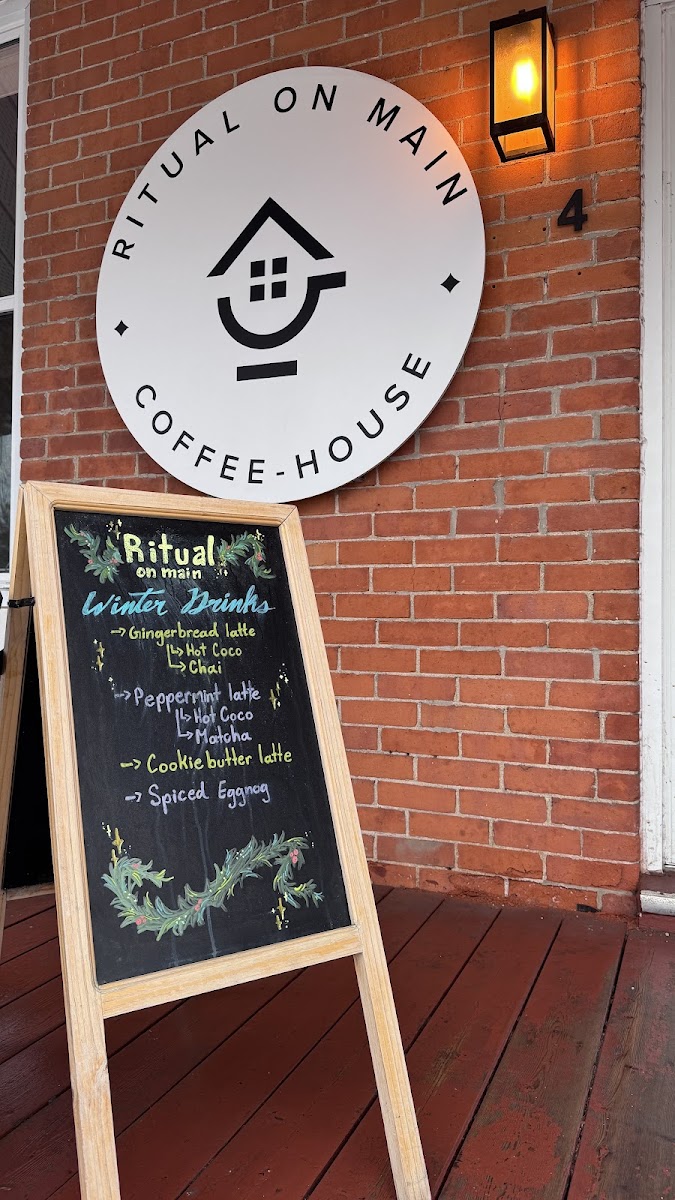 RITUAL ON MAIN
COFFEE-HOUSE
4
Ritual
on main
Winter Drinks
→ Gingerbread latte
↳ Hot Coco
↳ Chai
→ Peppermint latte
↳ Hot Coco
↳ Matcha
→ Cookie butter latte
→ Spiced Eggnog